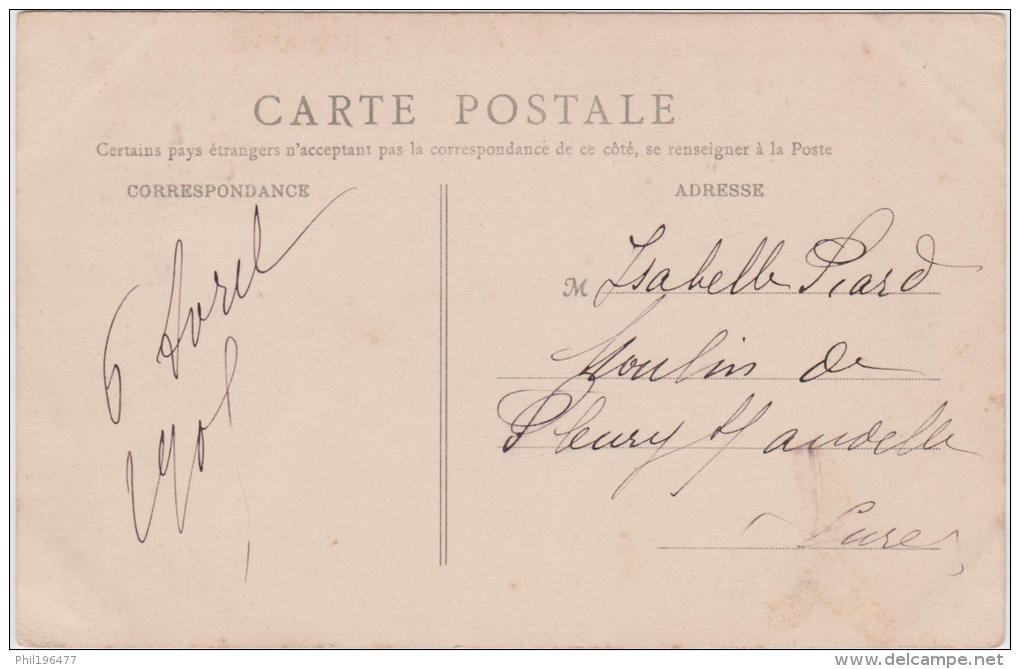 CARTE POSTALE
Certains pays étrangers n'acceptant pas la correspondance de ce côté, se renseigner à la Poste
CORRESPONDANCE
6 Avril
ADRESSE
M Isabelle Piard
Moulin de
Fleury
Eure
Phil196477
www.delcampe.net